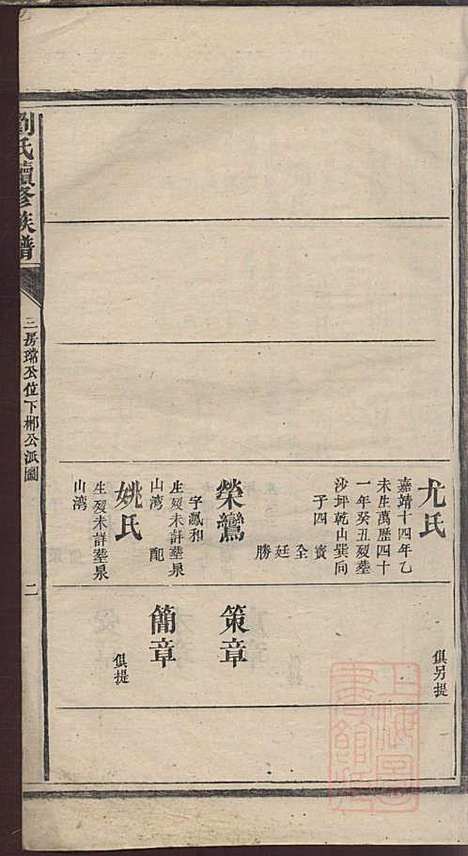 尤氏
嘉靖十四年乙
未生萬歷四十
一年癸丑歿葬
沙坪乾山巽向
子四 賓
全
廷
勝
俱另提
榮鸞
字鳳和
生歿未詳葬泉
山湾 配
姚氏
生歿未詳葬泉
山湾
策章
簡章
俱提
劉氏續修族譜
三房瑺公位下郴公派圖
二